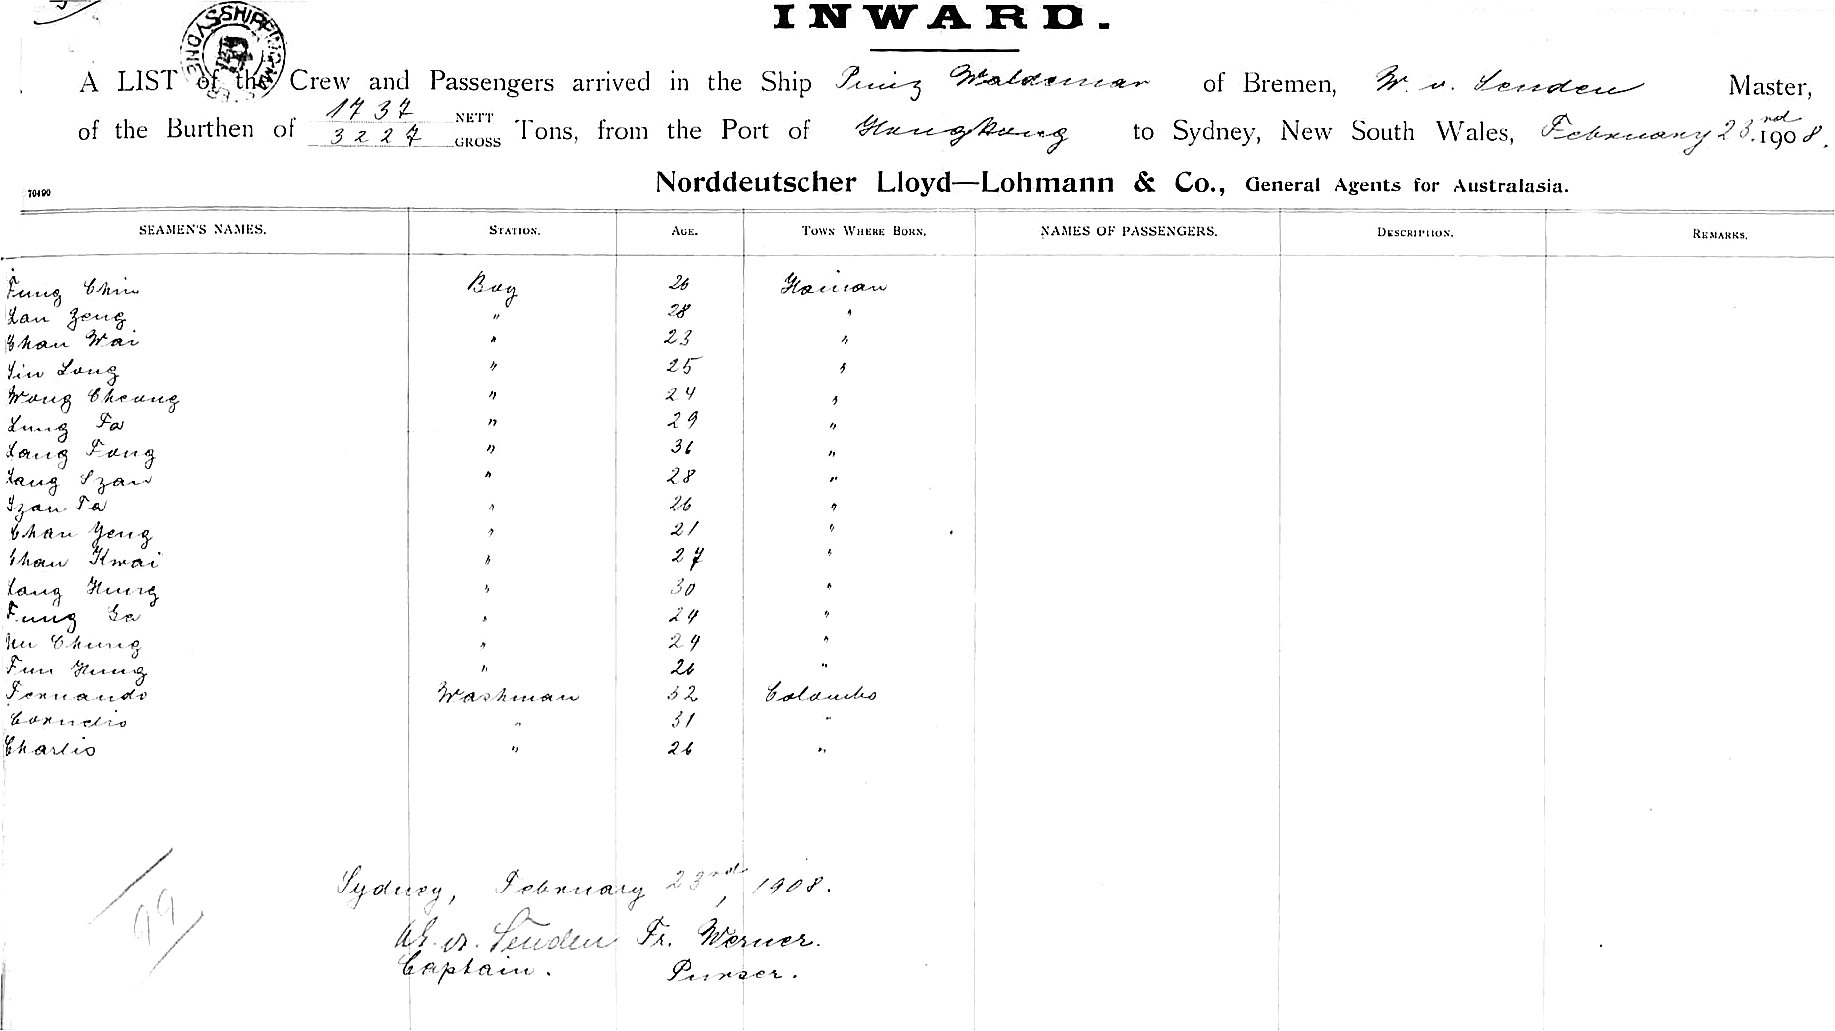 INWARD.
A LIST of the Crew and Passengers arrived in the Ship Prinz Waldemar of Bremen, W. v. Senden Master,
of the Burthen of 1737 NETT 3227 GROSS Tons, from the Port of Hongkong to Sydney, New South Wales, February 23rd 1908.
70490 Norddeutscher Lloyd—Lohmann & Co., General Agents for Australasia.
SEAMEN'S NAMES. STATION. AGE. TOWN WHERE BORN. NAMES OF PASSENGERS. DESCRIPTION. REMARKS.
Fung Chin Boy 26 Hainan
Lan Zeng " 28 "
Chan Wai " 23 "
Sin Long " 25 "
Wong Cheong " 24 "
Lung Fa " 29 "
Lang Fong " 36 "
Lang Szan " 28 "
Szan Fa " 26 "
Chan Yeng " 21 "
Chan Kwai " 27 "
Lang Hung " 30 "
Fung Ga " 24 "
Chung " 24 "
Fun Hung " 26 "
Fernando Washman 32 Colombo
Cornelis " 31 "
Charlis " 26 "
Sydney, February 23nd, 1908.
W. v. Senden Fr. Werner.
Captain. Purser.
99